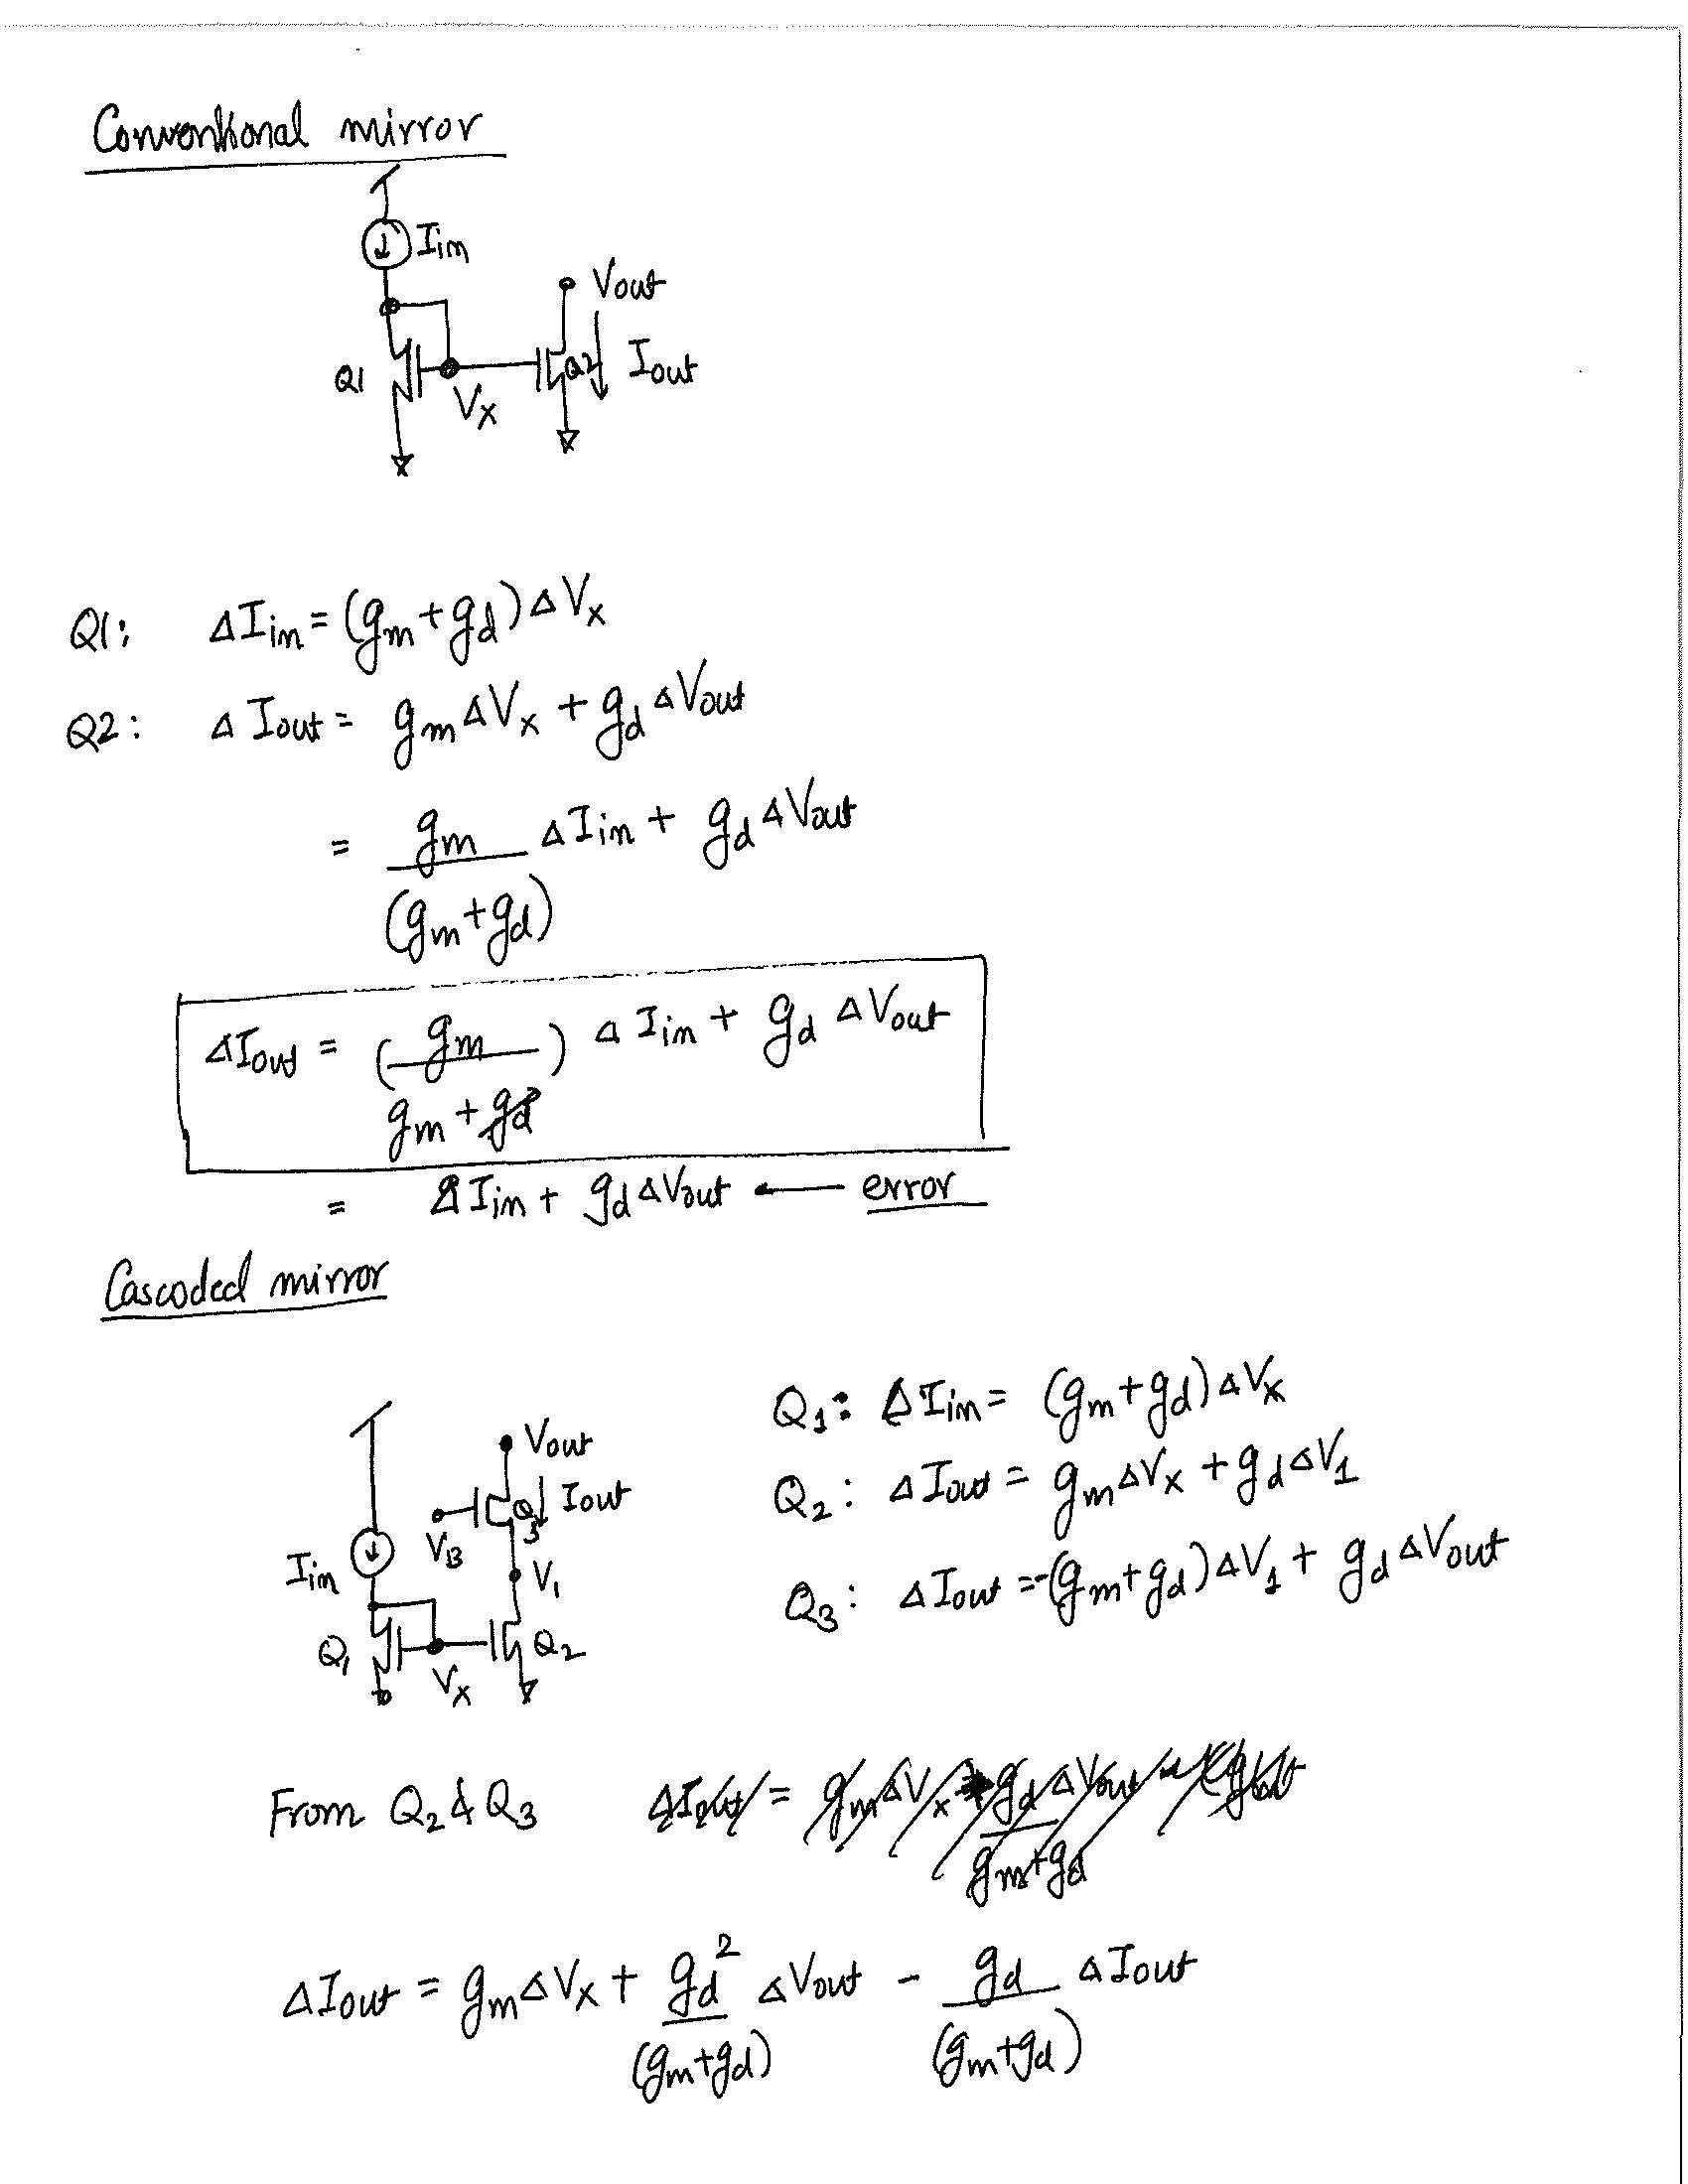 Conventional mirror
Iin
Vout
Q1
Vx
Q2
Iout
Q1: ΔIin = (gm+gd)ΔVx
Q2: ΔIout = gmΔVx + gdΔVout
= gm/(gm+gd) ΔIin + gdΔVout
ΔIout = (gm/gm+gd) ΔIin + gd ΔVout
= ΔIin + gdΔVout ← error
Cascoded mirror
Vout
Q3
Iout
VB
Iin
V1
Q1
Vx
Q2
Q1: ΔIin = (gm+gd)ΔVx
Q2: ΔIout = gmΔVx + gdΔV1
Q3: ΔIout = -(gm+gd)ΔV1 + gdΔVout
From Q2 & Q3
ΔIout = gmΔVx + gd²/(gm+gd) ΔVout - gd/(gm+gd) ΔIout